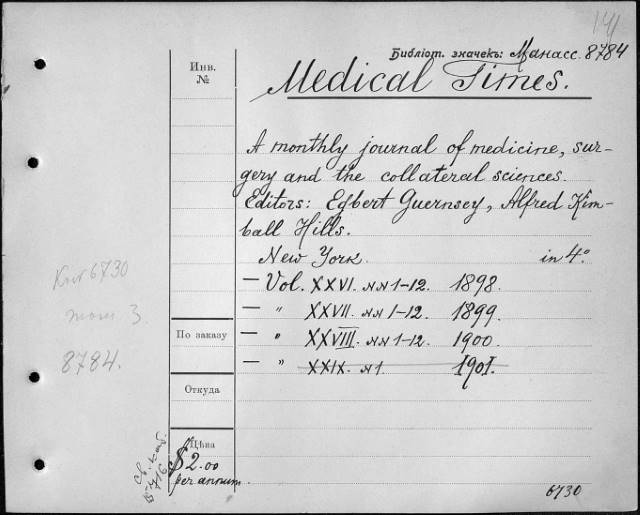 141
Библіот. значекъ: Манасс. 8784
Инв.
№
Medical Times.
A monthly journal of medicine, sur-
gery and the collateral sciences.
Editors: Egbert Guernsey, Alfred Kim-
ball Hills.
New York. in 4°
— Vol. XXVI. NN 1-12. 1898.
— " XXVII. NN 1-12. 1899.
— " XXVIII. NN 1-12. 1900.
— " XXIX. N 1. 1901.
6730
том 3.
8784.
По заказу
Откуда
Цѣна
$2.00
per annum.
716
6730